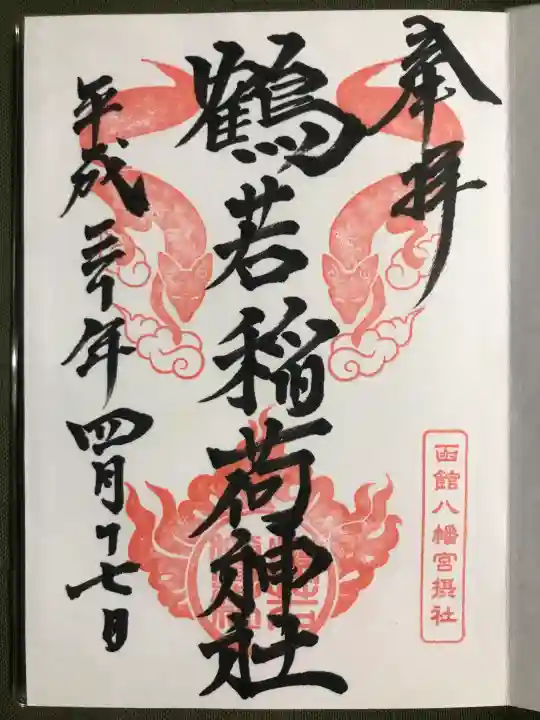 奉拝
函館八幡宮摂社
鶴若稲荷神社
平成三十年四月十七日